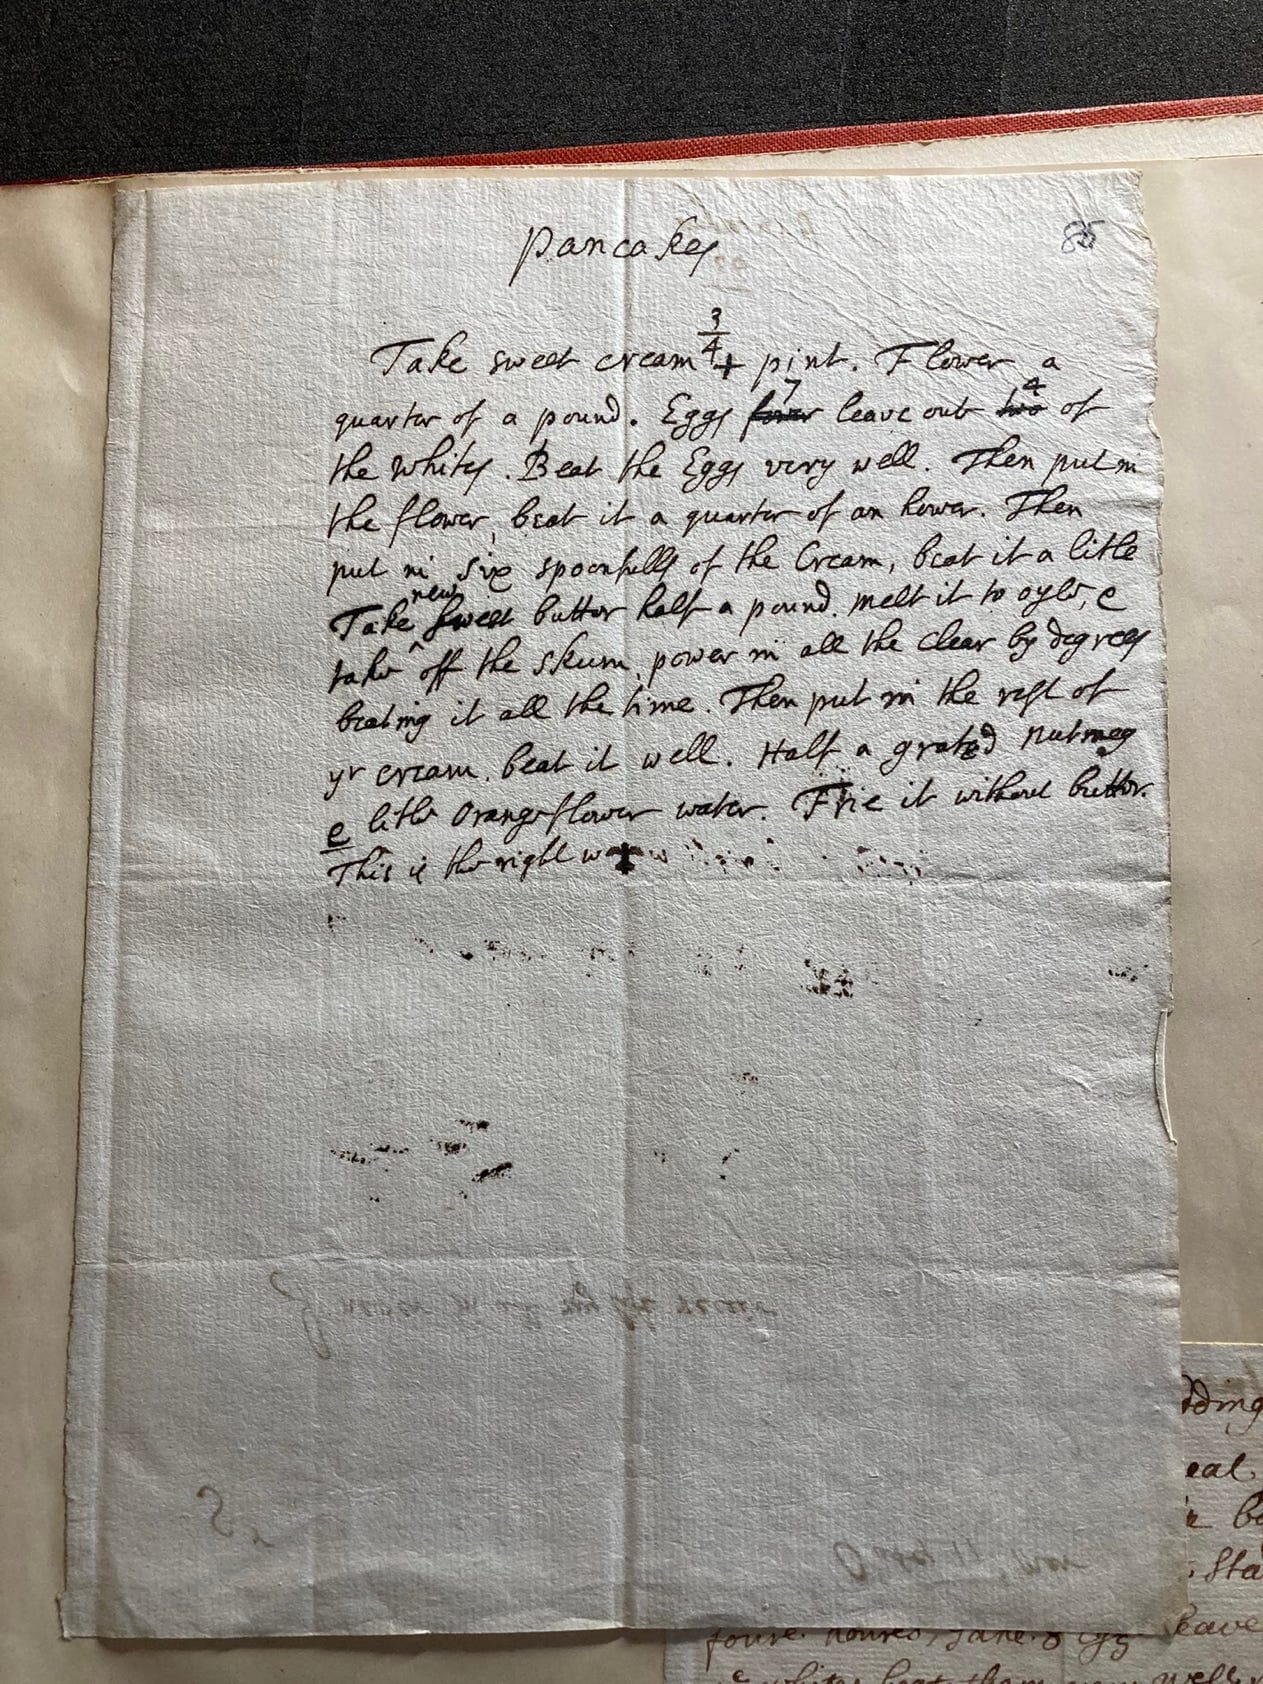 pancakes
85
Take sweet cream 3/4 + pint. Flower a
quarter of a pound. Eggs fower 7 leave out two 4 of
the whites. Beat the Eggs very well. Then put in
the flower, beat it a quarter of an hower. Then
put in six spoonfulls of the Cream, beat it a litle
Take new sweet butter half a pound. melt it to oyle, &
take off the skum, power in all the clear by degrees
beating it all the time. Then put in the rest of
yr cream. beat it well. Half a grated nutmeg
& litle Orangeflower water. Frie it without butter.
This is the right
dding
eal
foure houres, Take 8 eggs leave
whites beat them very well